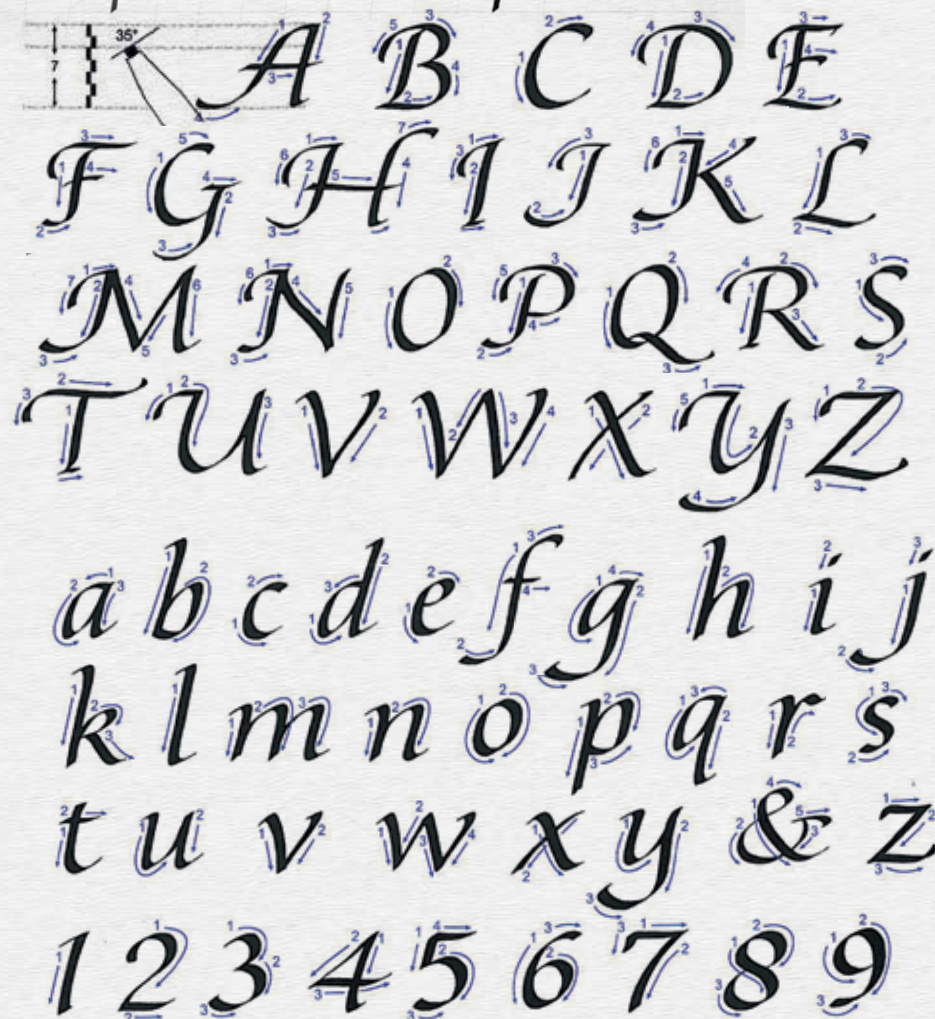 7 35° A B C D E
F G H I J K L
M N O P Q R S
T U V W X Y Z
a b c d e f g h i j
k l m n o p q r s
t u v w x y & z
1 2 3 4 5 6 7 8 9